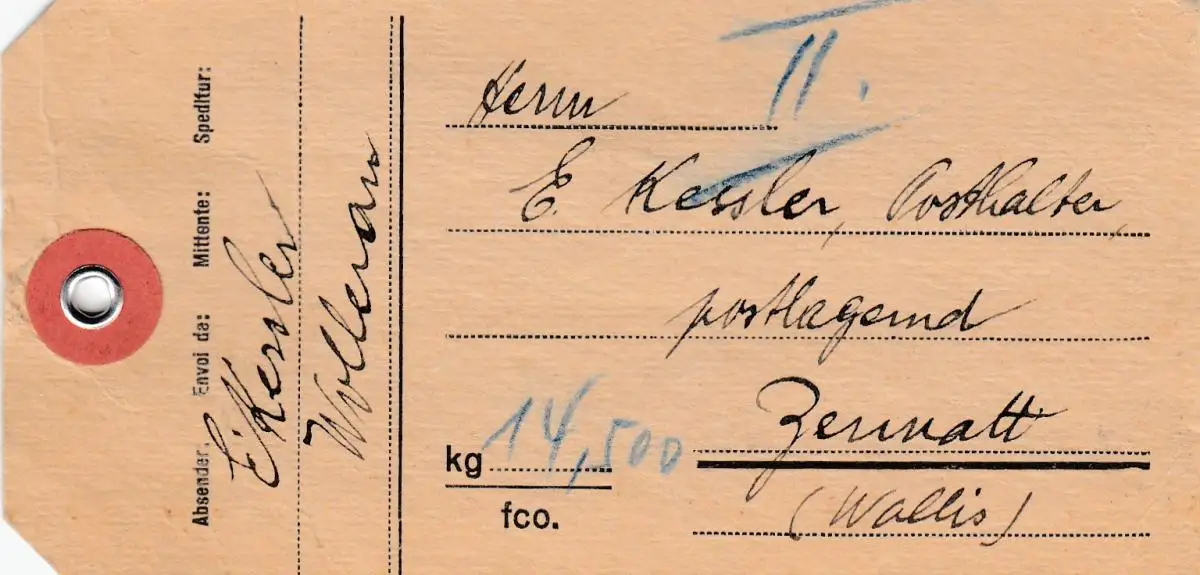 Absender: Envoi da: Mittente: Speditur:
E. Kessler
Wollerau
II.
Herrn
E. Kessler, Posthalter,
postlagernd
Zermatt
(Wallis)
kg 14,500
fco.